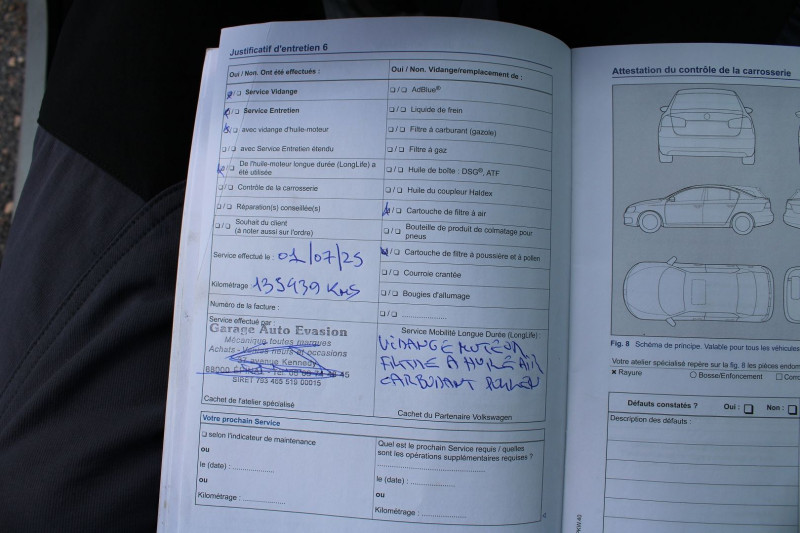 Justificatif d'entretien 6
Oui / Non. Ont été effectués :
❏/❏ Service Vidange
❏/❏ Service Entretien
❏/❏ avec vidange d'huile-moteur
❏/❏ avec Service Entretien étendu
❏/❏ De l'huile-moteur longue durée (LongLife) a
été utilisée
❏/❏ Contrôle de la carrosserie
❏/❏ Réparation(s) conseillée(s)
❏/❏ Souhait du client
(à noter aussi sur l'ordre)
Service effectué le : 01/07/25
Kilométrage : 135939 KMS
Numéro de la facture :
Service effectué par :
Garage Auto Evasion
Mécanique toutes marques
Achats - Ventes neufs et occasions
37 avenue Kennedy
88000 ÉPINAL - Tél
SIRET 793 465 519 00015
Cachet de l'atelier spécialisé
Oui / Non. Vidange/remplacement de :
❏/❏ AdBlue®
❏/❏ Liquide de frein
❏/❏ Filtre à carburant (gazole)
❏/❏ Filtre à gaz
❏/❏ Huile de boîte : DSG®, ATF
❏/❏ Huile du coupleur Haldex
❏/❏ Cartouche de filtre à air
❏/❏ Bouteille de produit de colmatage pour
pneus
❏/❏ Cartouche de filtre à poussière et à pollen
❏/❏ Courroie crantée
❏/❏ Bougies d'allumage
❏/❏ ....................
Service Mobilité Longue Durée (LongLife) :
VIDANGE MOTEUR
FILTRE A HUILE AIR
CARBURANT POLLEN
Cachet du Partenaire Volkswagen
Votre prochain Service
❏ selon l'indicateur de maintenance
ou
le (date) : ...............
ou
Kilométrage : ...............
Quel est le prochain Service requis / quelles
sont les opérations supplémentaires requises ?
le (date) : ...............
ou
Kilométrage : ...............
4
Attestation du contrôle de la carrosserie
Fig. 8 Schéma de principe. Valable pour tous les véhicules
Votre atelier spécialisé repère sur la fig. 8 les pièces endom
✕ Rayure ○ Bosse/Enfoncement ❏ Corro
Défauts constatés ? Oui : ❏ Non : ❏
Description des défauts :